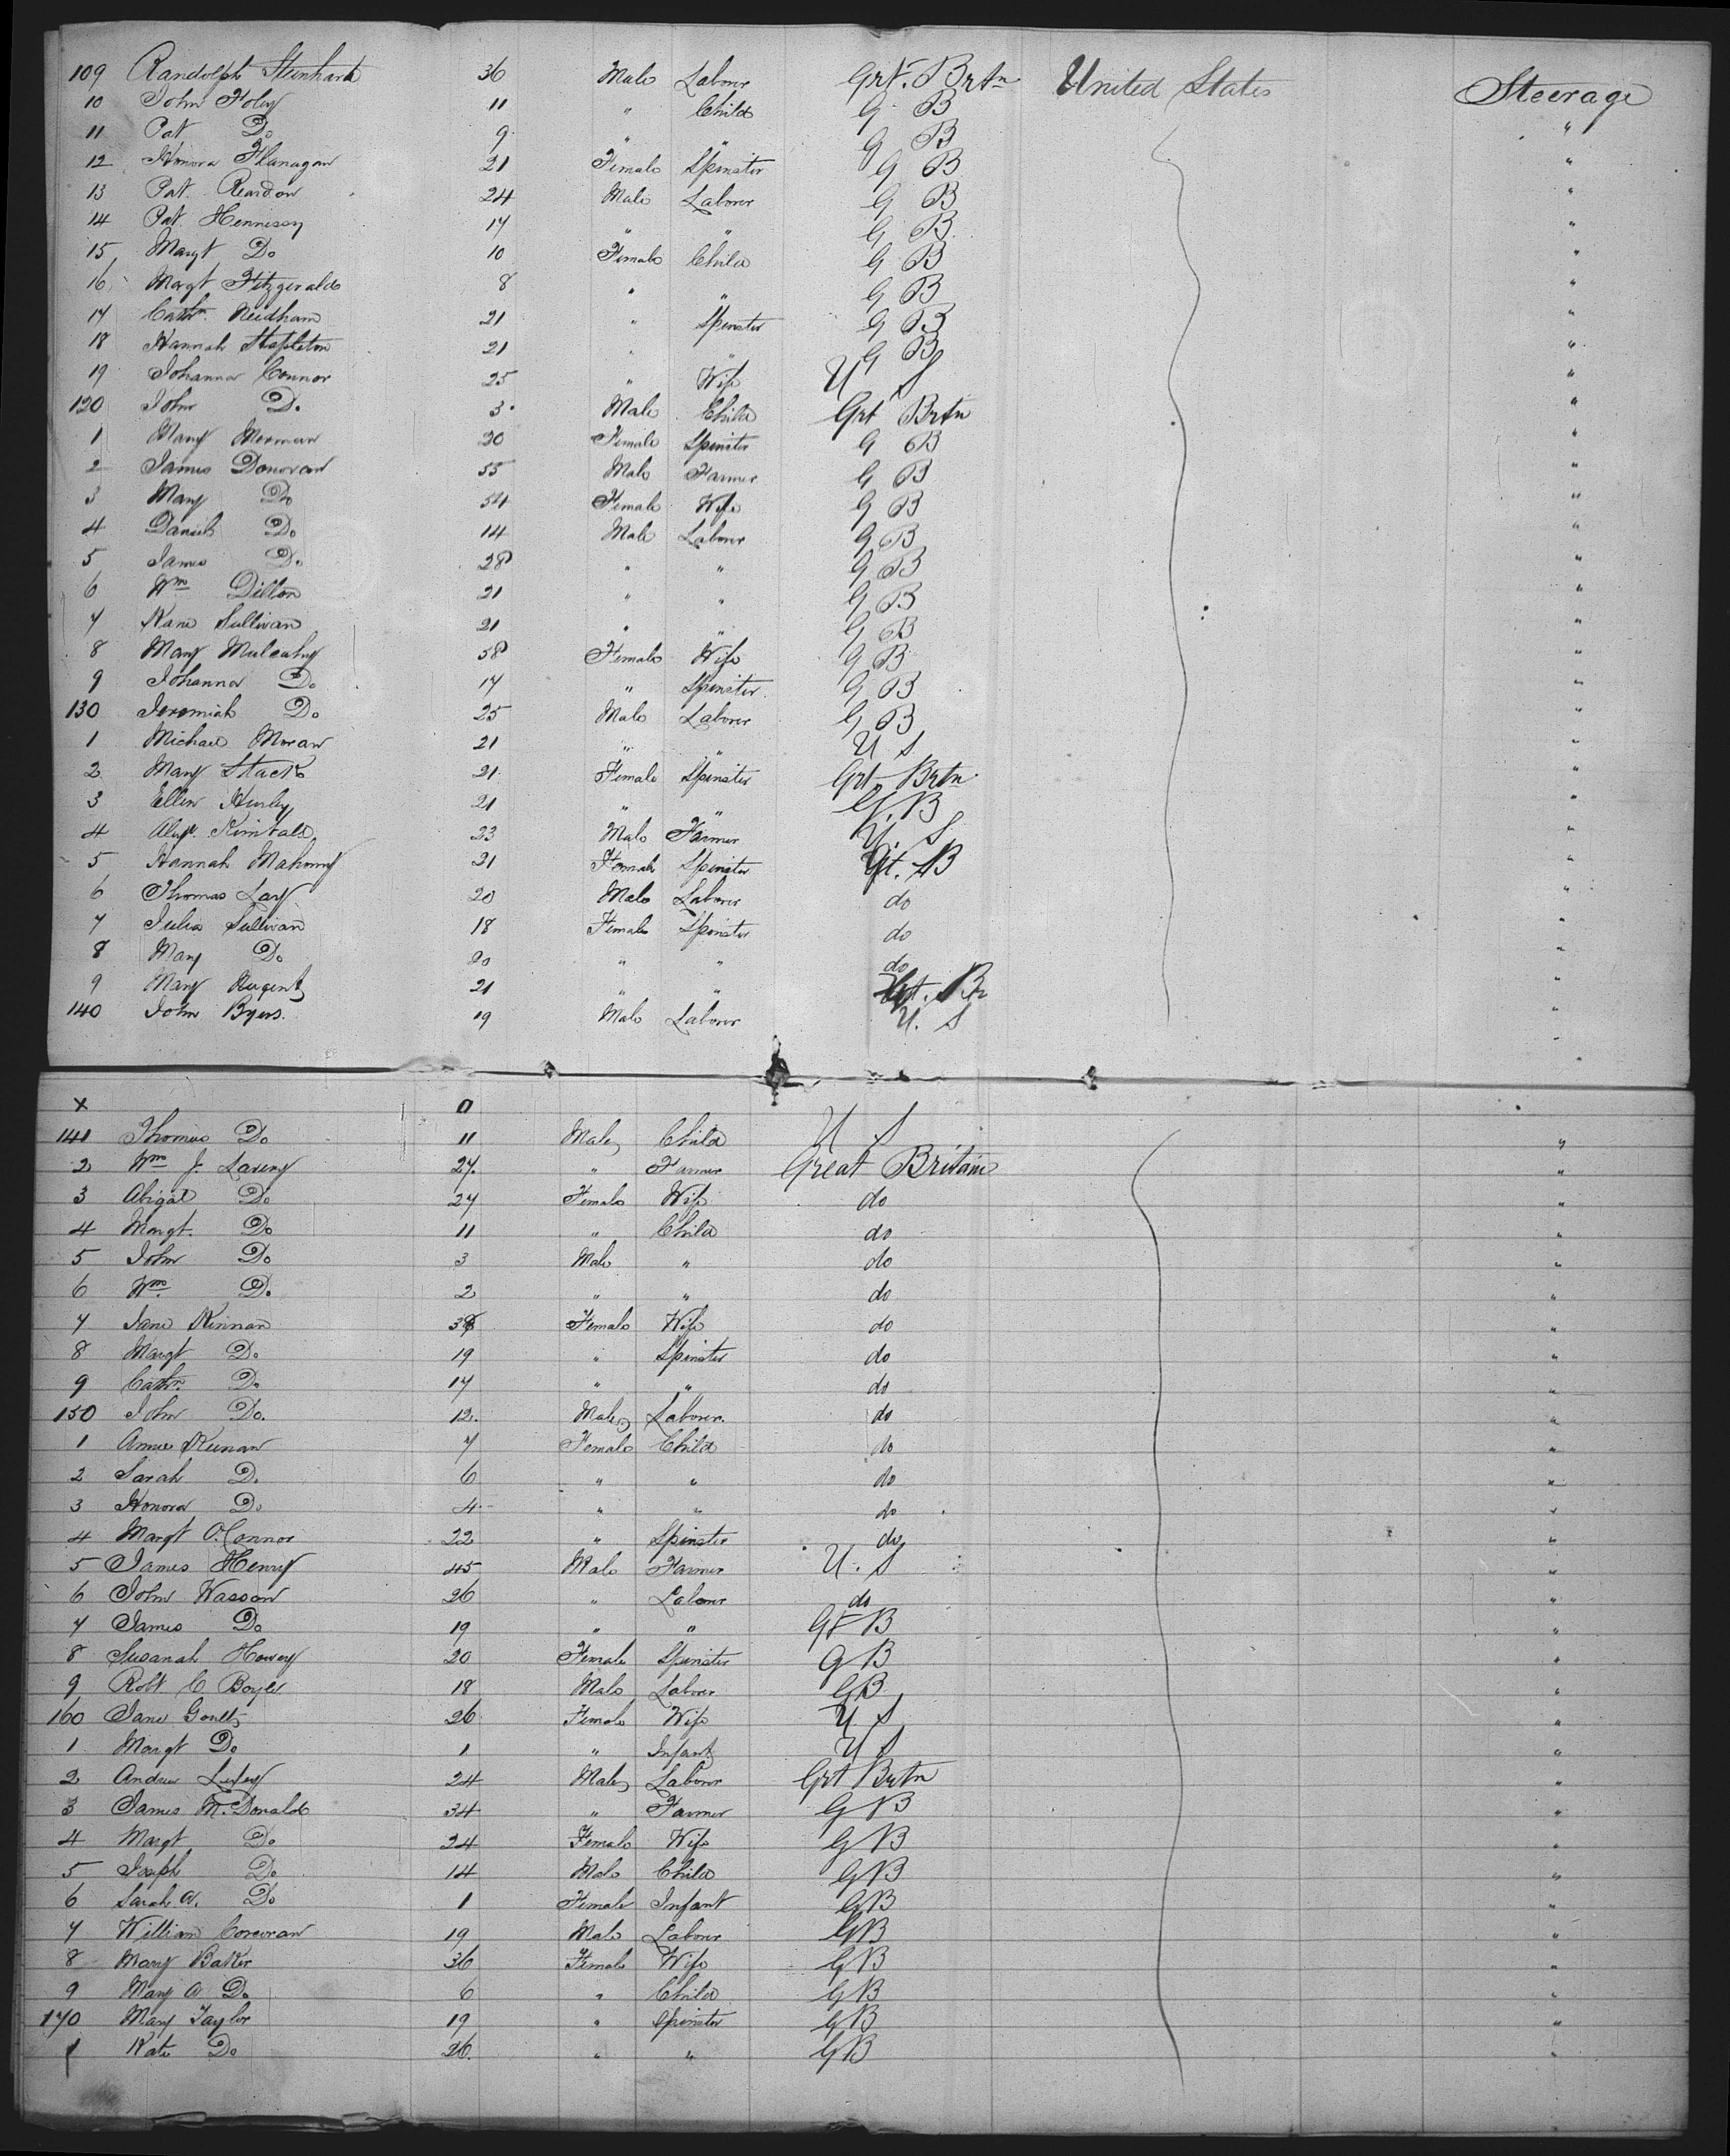 109 Randolph Steinhard 36 Male Laborer Grt. Brtn United States Steerage
10 John Foley 11 " Child G B "
11 Pat Do 9 " " G B "
12 Honora Flanagan 21 Female Spinster G B "
13 Pat Reardon 24 Male Laborer G B "
14 Pat Hennesey 17 " " G B "
15 Margt Do 10 Female Child G B "
16 Margt Fitzgerald 8 " " G B "
17 Cathn Needham 21 " Spinster G B "
18 Hannah Stapleton 21 " " G B "
19 Johanna Connor 25 " Wife U S "
120 John Do 3 Male Child Grt Brtn "
1 Mary 20 Female Spinster G B "
2 James Donovan 55 Male Farmer G B "
3 Mary Do 54 Female Wife G B "
4 Daniel Do 14 Male Laborer G B "
5 James Do 28 " " G B "
6 Wm Dillon 21 " " G B "
7 Sullivan 21 " " G B "
8 Mary Mulcahy 58 Female Wife G B "
9 Johanna Do 17 " Spinster G B "
130 Jeremiah Do 25 Male Laborer G B "
1 Michael Moran 21 " " U S "
2 Mary Stack 21 Female Spinster Grt. Brtn "
3 Ellen Hurley 21 " " G. B "
4 Kimball 23 Male Farmer U. S "
5 Hannah Mahony 21 Female Spinster Gt. B "
6 Thomas 20 Male Laborer do "
7 Julia Sullivan 18 Female Spinster do "
8 Mary Do 20 " " do "
9 Mary Nugent 21 " " Grt. Br "
140 John Byers. 19 Male Laborer U. S "
x 0
141 Thomas Do 11 Male Child U S "
2 Wm J. 27. " Farmer Great Britain "
3 Abigal Do 27 Female Wife do "
4 Margt. Do 11 " Child do "
5 John Do 3 Male " do "
6 Wm. Do 2 " " do "
7 Jane Kinnan Female Wife do "
8 Margt Do 19 " Spinster do "
9 Cathn. Do 17 " " do "
150 John Do. 12. Male Laborer. do "
1 Annie Keenan 7 Female Child do "
2 Sarah Do 6 " " do "
3 Honora Do 4 " " do "
4 Margt O.Connor 22 " Spinster do "
5 James Henry 45 Male Farmer U. S "
6 John Wasson 26 " Laborer do "
7 James Do 19 " " Gt B "
8 Susanah Howey 20 Female Spinster G B "
9 Robt C Boyle 18 Male Laborer G B "
160 Jane 26 Female Wife U S "
1 Margt Do 1 " Infant U S "
2 Andrew 24 Male Laborer Grt Brtn "
3 James Mc.Donald 34 " Farmer G B "
4 Margt Do 24 Female Wife G B "
5 Joseph Do 14 Male Child G B "
6 Sarah A. Do 1 Female Infant G B "
7 William Corcoran 19 Male Laborer G B "
8 Mary Baker 36 Female Wife G B "
9 Mary A Do 6 " Child G B "
170 Mary Taylor 19 " Spinster G B "
1 Kate Do 26. " " G B "